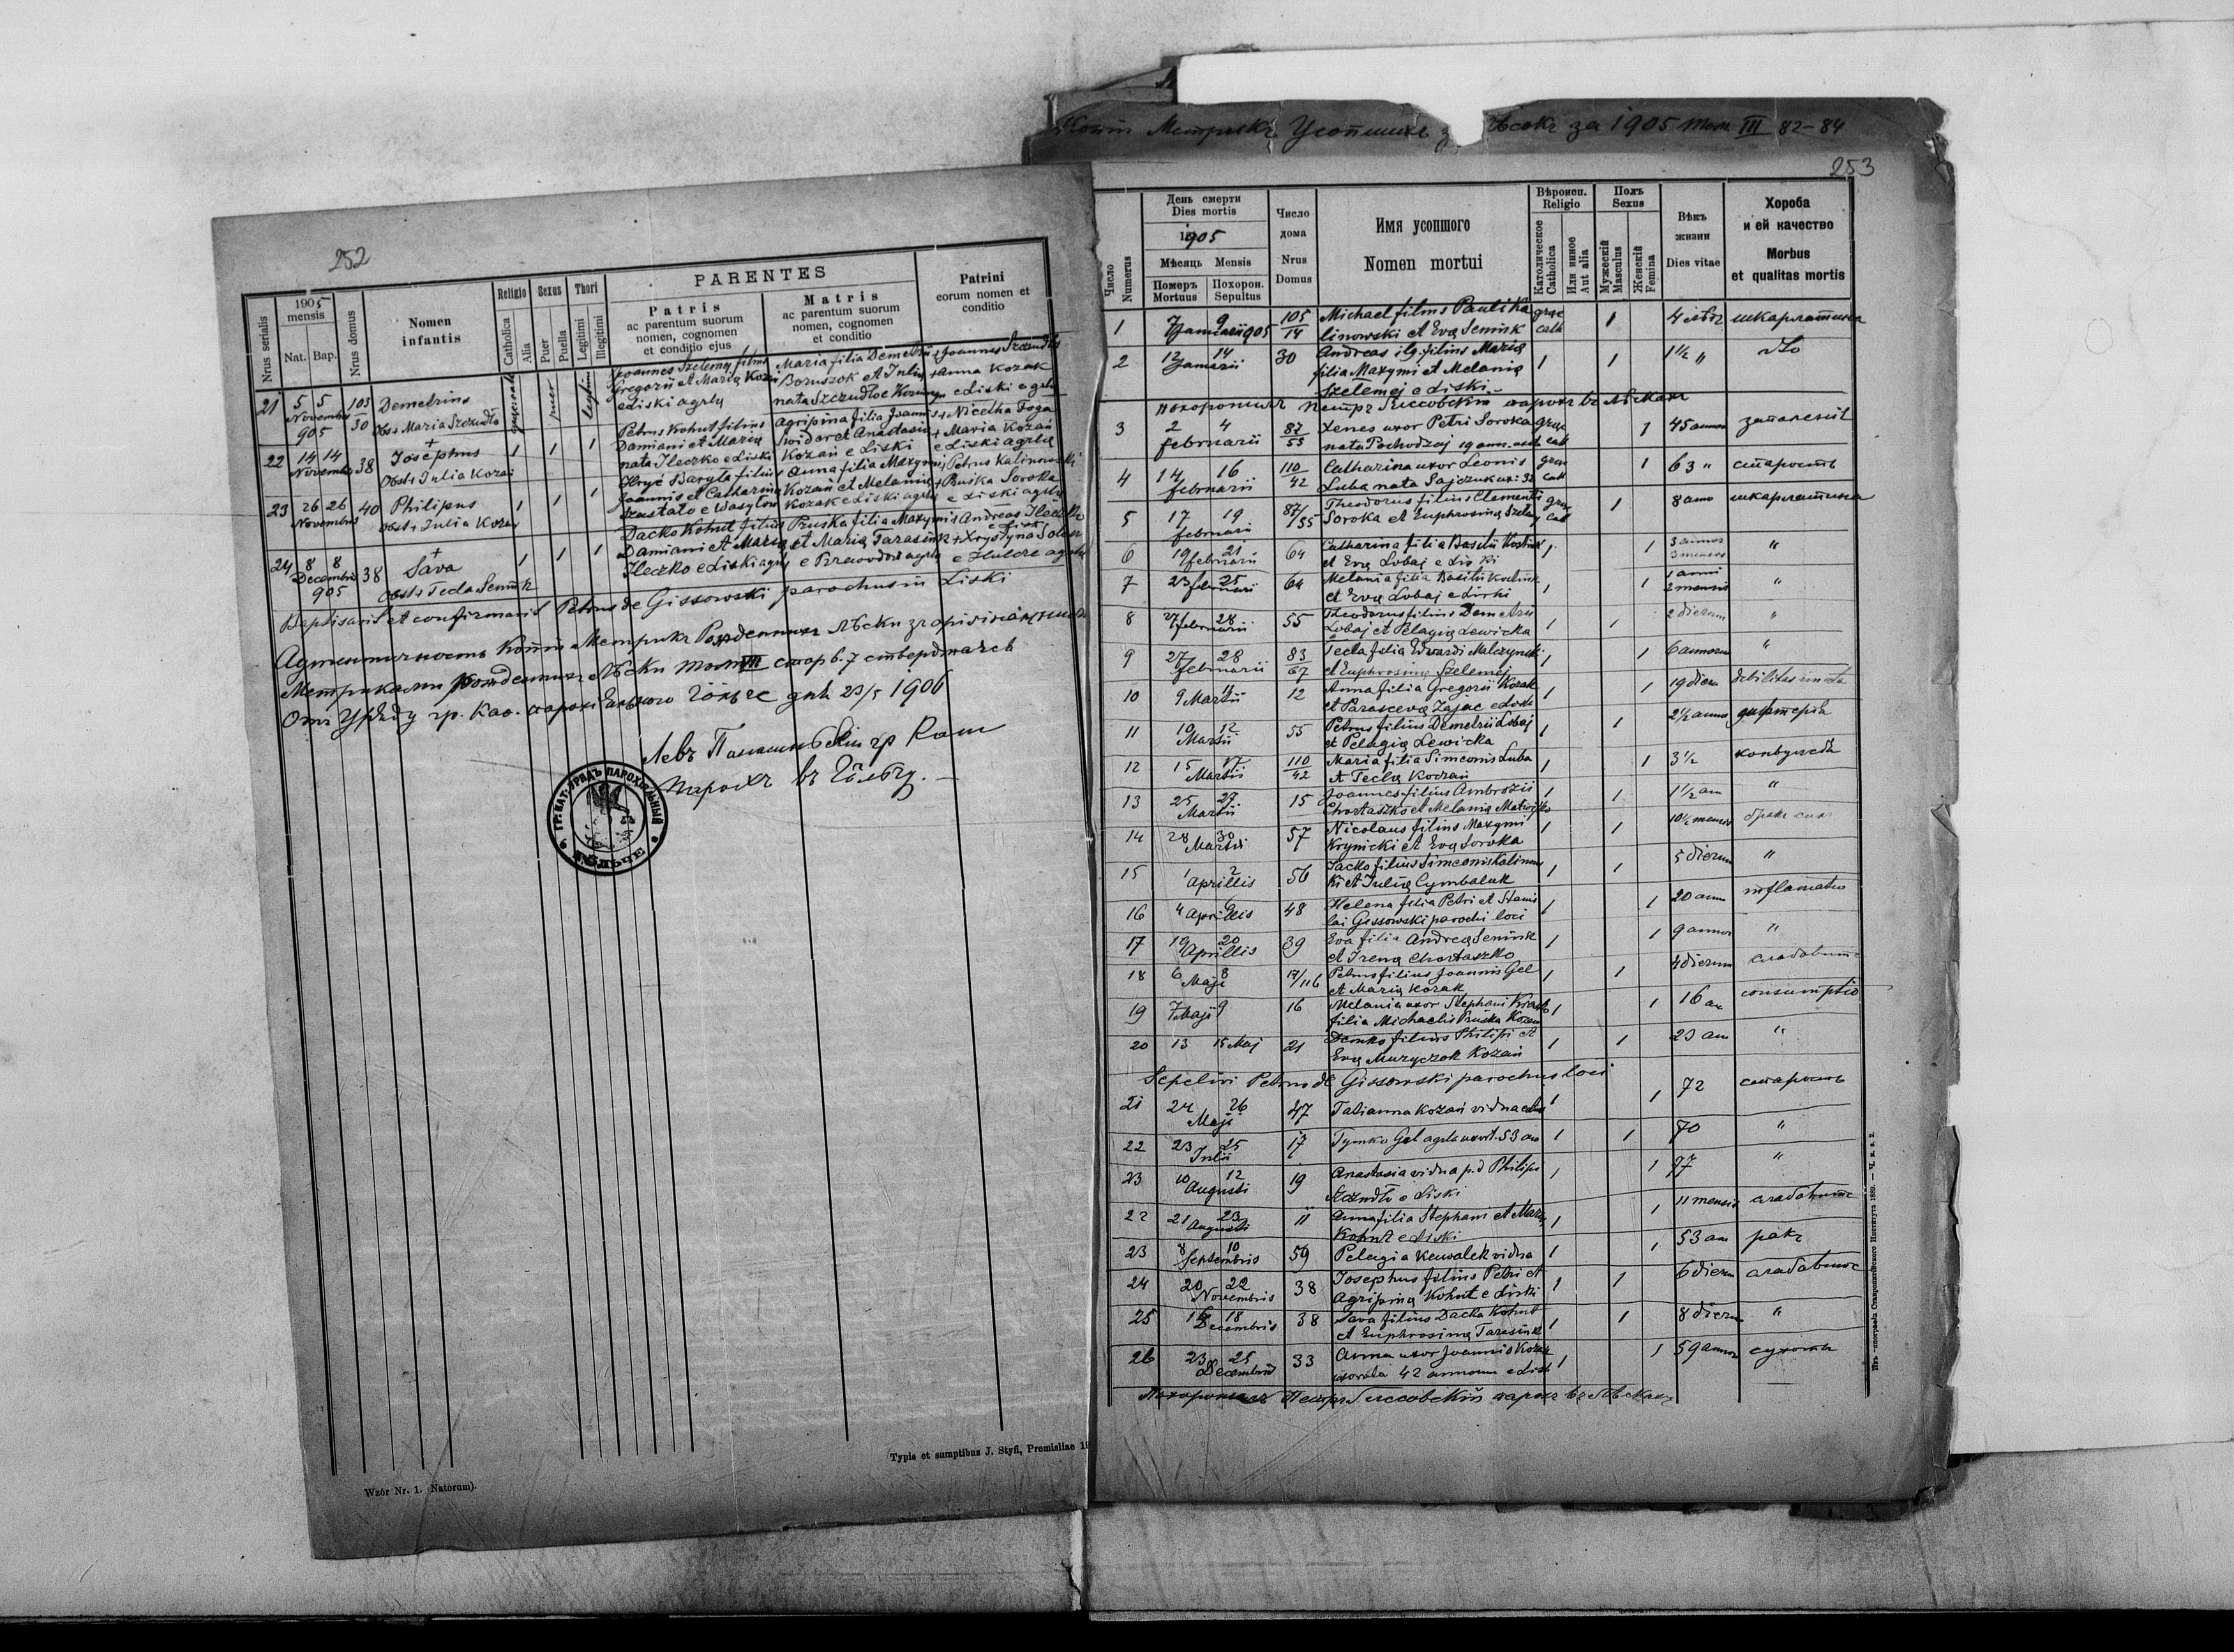 252
Nrus serialis
1905
mensis
Nat. Bap.
Nrus domus
Nomen
infantis
Religio
Catholica
Alia
Sexus
Puer
Puella
Thori
Legitimi
Illegitimi
PARENTES
Patris
ac parentum suorum
nomen, cognomen
et conditio ejus
Matris
ac parentum suorum
nomen, cognomen
et conditio
Patrini
eorum nomen et
conditio
21 5 5 Novembris 905 103/30 Demetrius
Obst. Maria Szczudło
Joannes Szelemej filius
Gregorii et Maria Kozań
e Liski agrlę
Maria filia Demetrii
Boruszok et Julia
nata Szczudło e
Joannes Szczudło
+ Anna Kozak
e Liski agrlę
22 14 14 Novembris 38 + Josephus 1 1 1
Obst. Julia Kozań
Petrus Kohut filius
Damiani et Maria
nata Ileczko e Liski
Agripina filia Joannis
Swidar et Anastasia
Kozań e Liski
+ Nicetha Foga
+ Maria Kozań
e Liski agrlę
23 26 26 Novembris 40 Philipus 1 1 1
Obst. Julia Kozań
Baryła filius
Joannis et Catharina
Szastało e Wasylow
Anna filia Maxymi
Kozań et Melania
Kozak e Liski agrlę
Petrus Kalinowski
+ Pruśka Soroka
e Liski agrlę
24 8 8 Decembris 905 38 + Sava 1 1 1
Obst. Tecla Seniuk
Dacko Kohut filius
Damiani et Maria
Ileczko e Liski agrlę
Pruśka filia Maxymi
et Maria Tarasiuk
e Przewodów agrlę
Andreas Ileczko
e Liski
+ Krystyna
e Hulcze agrlę
Baptisavit et confirmavit Petrus de Gissowski parochus in Liski
Аутентичность копіи Метрикъ Рожденныхъ Лѣски зъ оригінальными
Метриками рожденныхъ Лѣски томъ VII стор 6. 7 стверджаєсь
Отъ Уряду гр. кат. парохіяльного Гôльче дня 23/5 1906
Левъ гр кат
парохъ въ Гôльчу.
ГР. КАТ. УРЯДЪ ПАРОХІЯЛЬНЫЙ
ГÔЛЬЧЕ
Wzór Nr. 1. (Natorum).
Typis et sumptibus J. Styfi, Premisliae
Копія Метрикъ Усопшихъ за 1905 Том. III 82-84
253
Число
Numerus
День смерти
Dies mortis
1905
Мѣсяць Mensis
Померъ
Mortuus
Похорон.
Sepultus
Число
дома
Nrus
Domus
Имя усопшого
Nomen mortui
Вѣроисп.
Religio
Католическое
Catholica
Или инное
Aut alia
Полъ
Sexus
Мужескій
Masculus
Женскій
Femina
Вѣкъ
жизни
Dies vitae
Хороба
и ей качество
Morbus
et qualitas mortis
1 7 9 Januarii 905 105/14 Michael filius Pauli Ka
linowski et Eva Seniuk graec cath 1 4 лѣтъ шкарлятина
2 12 14 Januarii 30 Andreas ilg. filius Maria
filia Maxymi et Melania
Szelemej e Liski 1 1 1½ "
Похоронилъ Петръ Гиссовскій парохъ въ Лѣскахъ
3 2 4 februarii 87/55 Xenes uxor Petri Soroka
nata Pochodzaj 19 ann. uxor graec cath 1 45 annor запаленіє
4 14 16 februarii 110/42 Catharina uxor Leonis
Luba nata Sajczuk ux: 32 graec cath 1 63 " старость
5 17 19 februarii 87/55 Theodorus filius Clementi
Soroka et Euphrosina Szelemej graec cat 1 8 anno шкарлятина
6 19 21 februarii 64 Catharina filia Basilii
et Eva Lobaj e Liski 1 1 3 annor
3 menses "
7 23 25 februarii 64 Melania filia Basilii
et Eva Lobaj e Liski 1 1 1 anni
2 mensis "
8 27 28 februarii 55 Theodorus filius Demetrii
Lobaj et Pelagia Lewicka 1 1 2 dierum "
9 27 28 februarii 83/67 Tecla filia Edvardi Malczynski
et Euphrosina Szelemej 1 1 6 annorum "
10 9 11 Martii 12 Anna filia Gregorii Kozak
et Parasceva Zając e Liski 1 1 19 dierum debilitas innata
11 10 12 Martii 55 Petrus filius Demetrii Lobaj
et Pelagia Lewicka 1 1 2½ annor дифтерія
12 15 17 Martii 110/42 Maria filia Simeonis Luba
et Tecla Kozań 1 1 3½ конвульсія
13 25 27 Martii 15 Joannes filius Ambrozii
Chortaszko et Melania Matwijko 1 1 1½ an "
14 28 30 Martii 57 Nicolaus filius Maxymi
Krynicki et Eva Soroka 1 1 10½ mensis бракъ силъ
15 1 2 Aprillis 56 Jacko filius Simeonis Kalinows
ki et Julia Cymbaluk 1 1 5 dierum "
16 4 6 Aprillis 48 Helena filia Petri et Stanis
lai Gissowski parochi loci 1 1 20 ann inflamatio
17 19 20 Aprillis 39 Eva filia Andrea Seniuk
et Irena Chortaszko 1 1 9 annor "
18 6 8 Maji 17/116 Petrus filius Joannis Gel
et Maria Kozak 1 1 4 dierum слабовит
19 7 Maji 9 16 Melania uxor Stephani
filia Michaelis Pruśka Kozań 1 1 16 an consumptio
20 13 15 Maj 21 Demko filius Philipi et
Eva Muzyczok Kozań 1 1 23 an "
Sepelivi Petrus de Gissowski parochus loci
21 24 26 Maji 47 Tatianna Kozań vidua 1 1 72 старость
22 23 25 Julii 17 Tymko Gel agrla uxort. 53 an 1 1 70 "
23 10 12 Augusti 19 Anastasia vidua p.d Philipi
Szczudło e Liski 1 1 77 "
22 21 23 Augusti 11 Anna filia Stephani et Maria
Kohut e Liski 1 1 11 mensis слабовите
23 8 10 Septembris 59 Pelagia Kowalek vidua 1 1 53 an ракъ
24 20 22 Novembris 38 Josephus filius Petri et
Agripina Kohut e Liski 1 1 6 dierum слабовите
25 16 18 Decembris 38 Sava filius Dacka Kohut
et Euphrosina Tarasiuk 1 1 8 dierum "
26 23 25 Decembris 33 Anna uxor Joannis Kozak
uxorata 42 annorum e Liski 1 1 59 annor сухоты
Похоронилъ Петръ Гиссовскій парохъ въ Лѣскахъ
Изъ типографіи Ставропигійского Института 1889. — Ч. в. з. 2.